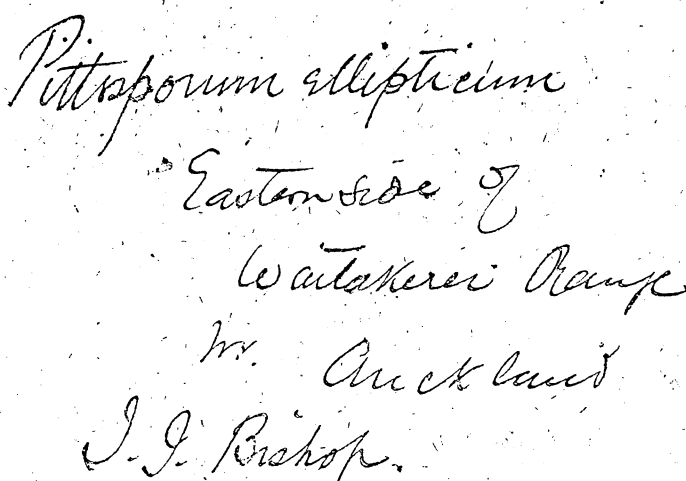 Pittosporum ellipticum
Eastern side of
Waitakerei Range
nr. Auckland
J. J. Bishop.